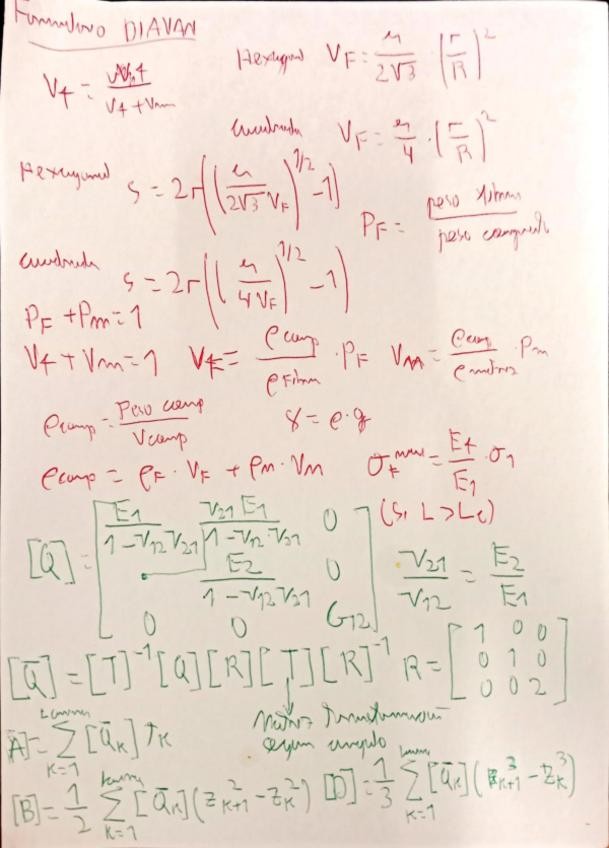 Formulario DIAVAN
V_f = V_f / (V_f + V_m)
Hexagonal V_F = π/(2√3) · (r/R)^2
Cuadrada V_F = π/4 · (r/R)^2
Hexagonal s = 2r((π/(2√3 V_F))^{1/2} - 1)
P_F = peso fibras / peso compuesto
cuadrada s = 2r((π/(4 V_F))^{1/2} - 1)
P_F + P_m = 1
V_f + V_m = 1 V_f = ρ_comp/ρ_fibra · P_F V_m = ρ_comp/ρ_matriz · P_m
ρ_comp = Peso comp / V_comp γ = ρ·g
ρ_comp = ρ_F · V_F + ρ_m · V_m σ_f^max = E_f/E_1 · σ_1
(Si L > L_c)
[Q] = [E_1/(1-ν_12 ν_21) ν_21 E_1/(1-ν_12·ν_21) 0
E_2/(1-ν_12 ν_21) 0
0 0 G_12] ν_21/ν_12 = E_2/E_1
[Q̄] = [T]^{-1} [Q] [R] [T] [R]^{-1} R = [1 0 0
0 1 0
0 0 2]
Matriz transformación
según angulo
[A] = Σ_{k=1} [Q̄_k] t_k
[B] = 1/2 Σ_{k=1} [Q̄_k] (z_{k+1}^2 - z_k^2) [D] = 1/3 Σ_{k=1} [Q̄_k] (z_{k+1}^3 - z_k^3)